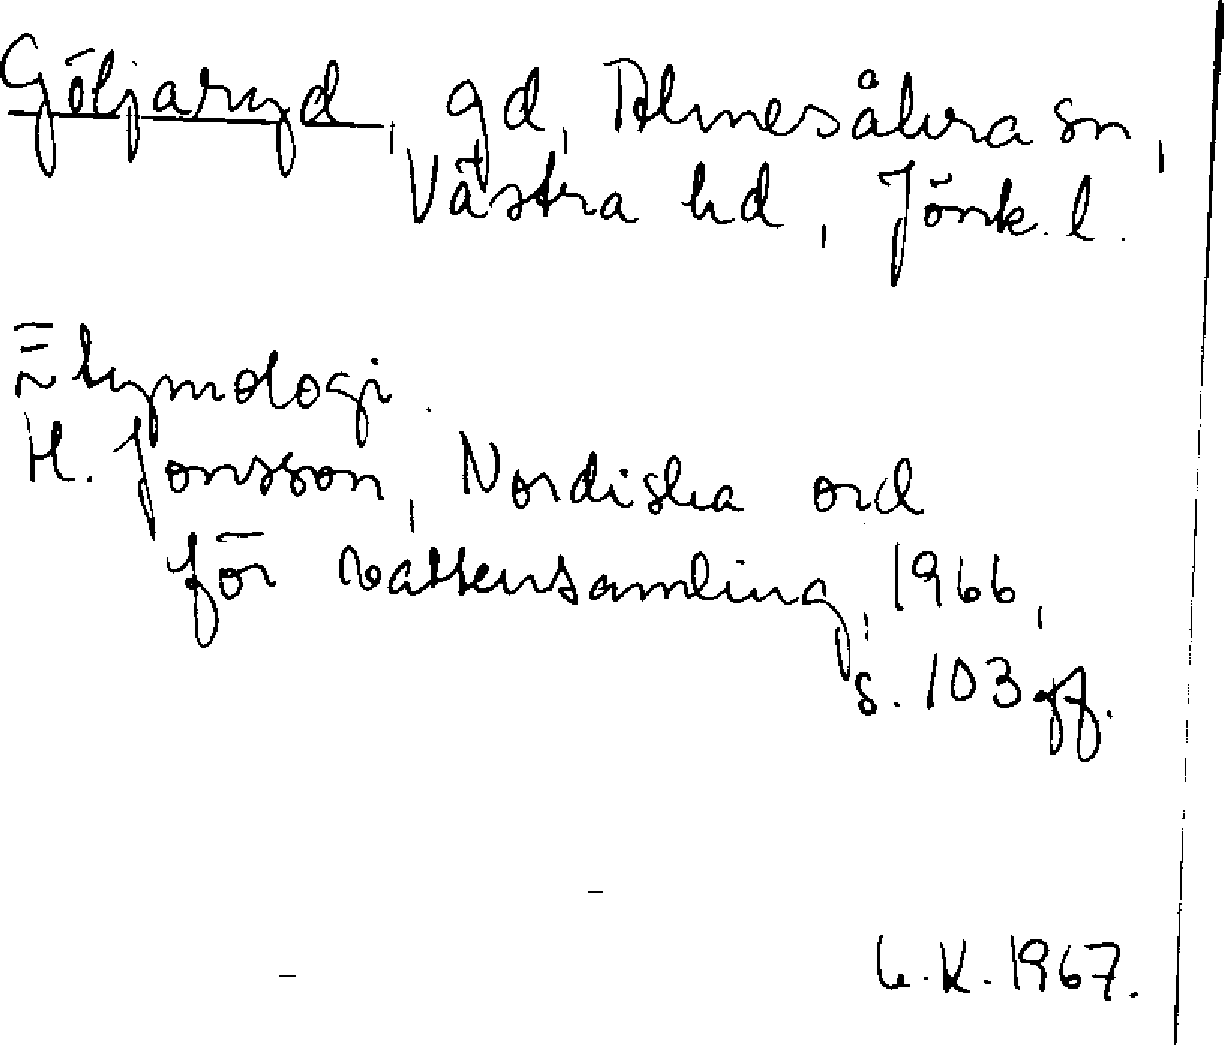 Göljaryd, gd, Almesåkra sn,
Västra hd, Jönk. l.
Etymologi.
H. Jonsson, Nordiska ord
för vattensamling, 1966,
s. 103 ff.
K. 1967.